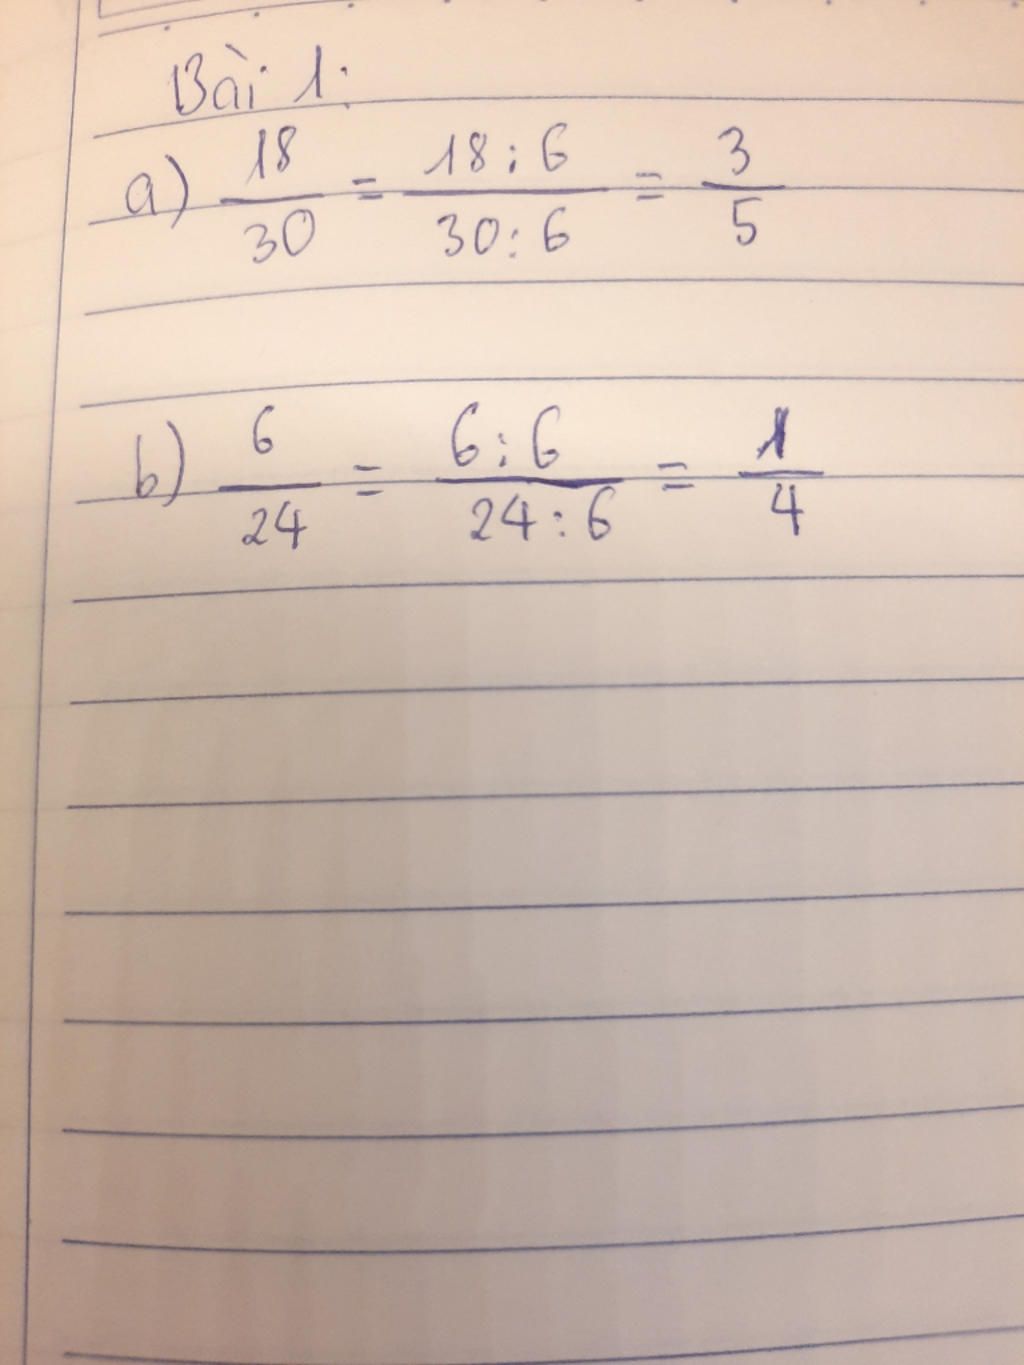 Bài 1:
a) 18/30 = 18:6/30:6 = 3/5
b) 6/24 = 6:6/24:6 = 1/4